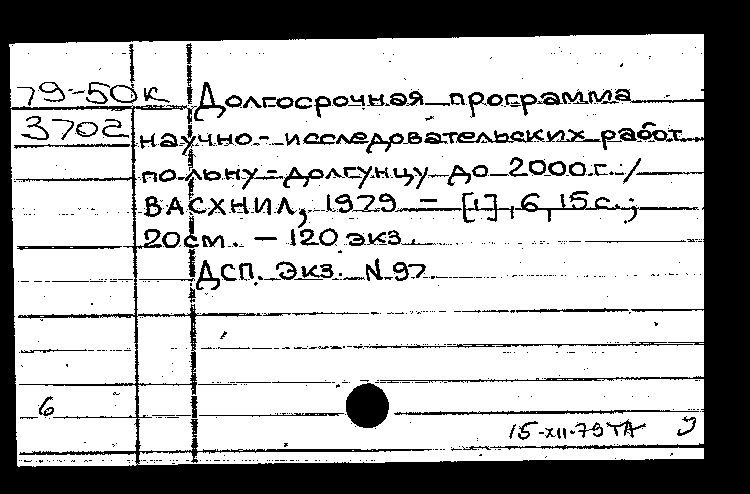 79-50к Долгосрочная программа
3702 научно-исследовательских работ
по льну-долгунцу до 2000 г. /
ВАСХНИЛ, 1979 — [1], 6, 15 с.;
20 см. — 120 экз.
ДСП. Экз. N 97.
6
15-XII-79 ТА